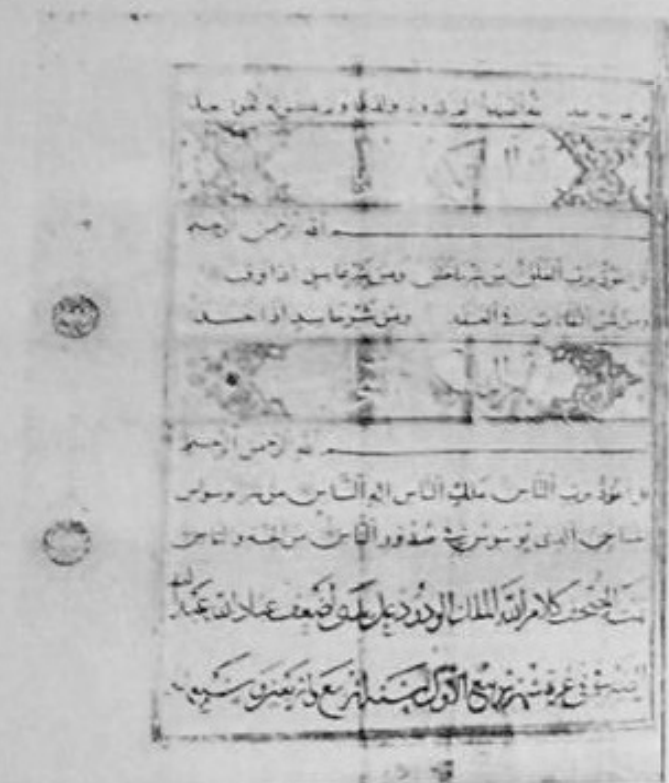 الله الصمد لم يلد ولم يولد ولم يكن له كفوا احد
الله الرحمن الرحيم
قل اعوذ برب الفلق من شر ما خلق ومن شر غاسق اذا وقب
ومن شر النفاثات في العقد ومن شر حاسد اذا حسد
الله الرحمن الرحيم
قل اعوذ برب الناس ملك الناس اله الناس من شر الوسواس
الخناس الذي يوسوس في صدور الناس من الجنة والناس
كلام الله الملك الودود على يد اضعف عباد الله عبد الله
في غرة شهر ربيع الاول لسنة اربع واربعين